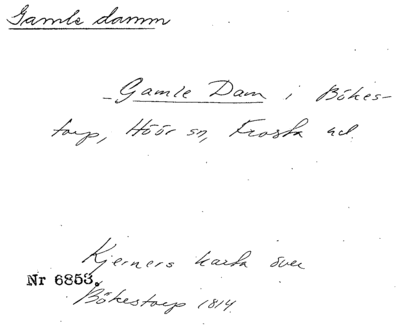 Gamle damm
- Gamle Dam i Bökes-
torp, Höör sn, Frosta hd.
Kjerners karta över
Nr 6853.
Bökestorp 1814.